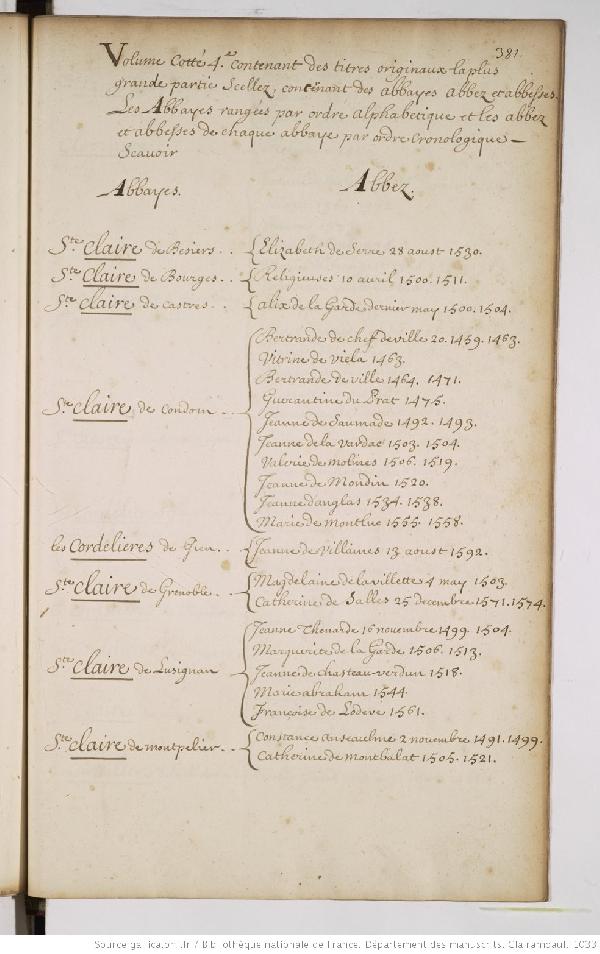 381.
Volume Cotté 4.e contenant des titres originaux la plus
grande partie Scellez, concernant des abbayes abbez et abbesses.
Les Abbayes rangées par ordre alphabetique et les abbez
et abbesses de chaque abbaye par ordre Cronologique
Scauoir
Abbayes. Abbez.
Ste Claire de Besiers. . { Elizabeth de Serre 28 aoust 1530.
Ste Claire de Bourges. . { Religieuses 10 auril 1500. 1511.
Ste Claire de Castres. . { alix de la Garde dernier may 1500. 1504.
Bertrande de chef de ville 20. 1459. 1463.
Vitrine de viela 1463.
Bertrande de ville 1464. 1471.
Guerantine du Prat 1475.
Ste Claire de Condom . . { Jeanne de Saumade 1492. 1493.
Jeanne de la Vardac 1503. 1504.
Valerie de molines 1506. 1519.
Jeanne de Mondin 1520.
Jeanne d'anglas 1534. 1538.
Marie de montluc 1555. 1558.
les Cordelieres de Gien. . { Jeanne de Villaines 13 aoust 1592.
Ste Claire de Grenoble. . { Magdelaine de la villette 4 may 1503.
Catherine de Salles 25 decembre 1571. 1574.
Jeanne Thenarde 16 nouembre 1499. 1504.
Marguerite de la Garde 1506. 1513.
Ste Claire de Lusignan { Jeanne de chasteau-verdun 1518.
Marie abraham 1544.
Françoise de Lodeve 1561.
Ste Claire de montpelier. . { Constance anseaulme 2 nouembre 1491. 1499.
Catherine de montbalat 1505. 1521.
Source gallica.bnf.fr / Bibliothèque nationale de France. Département des manuscrits. Clairambault 1033